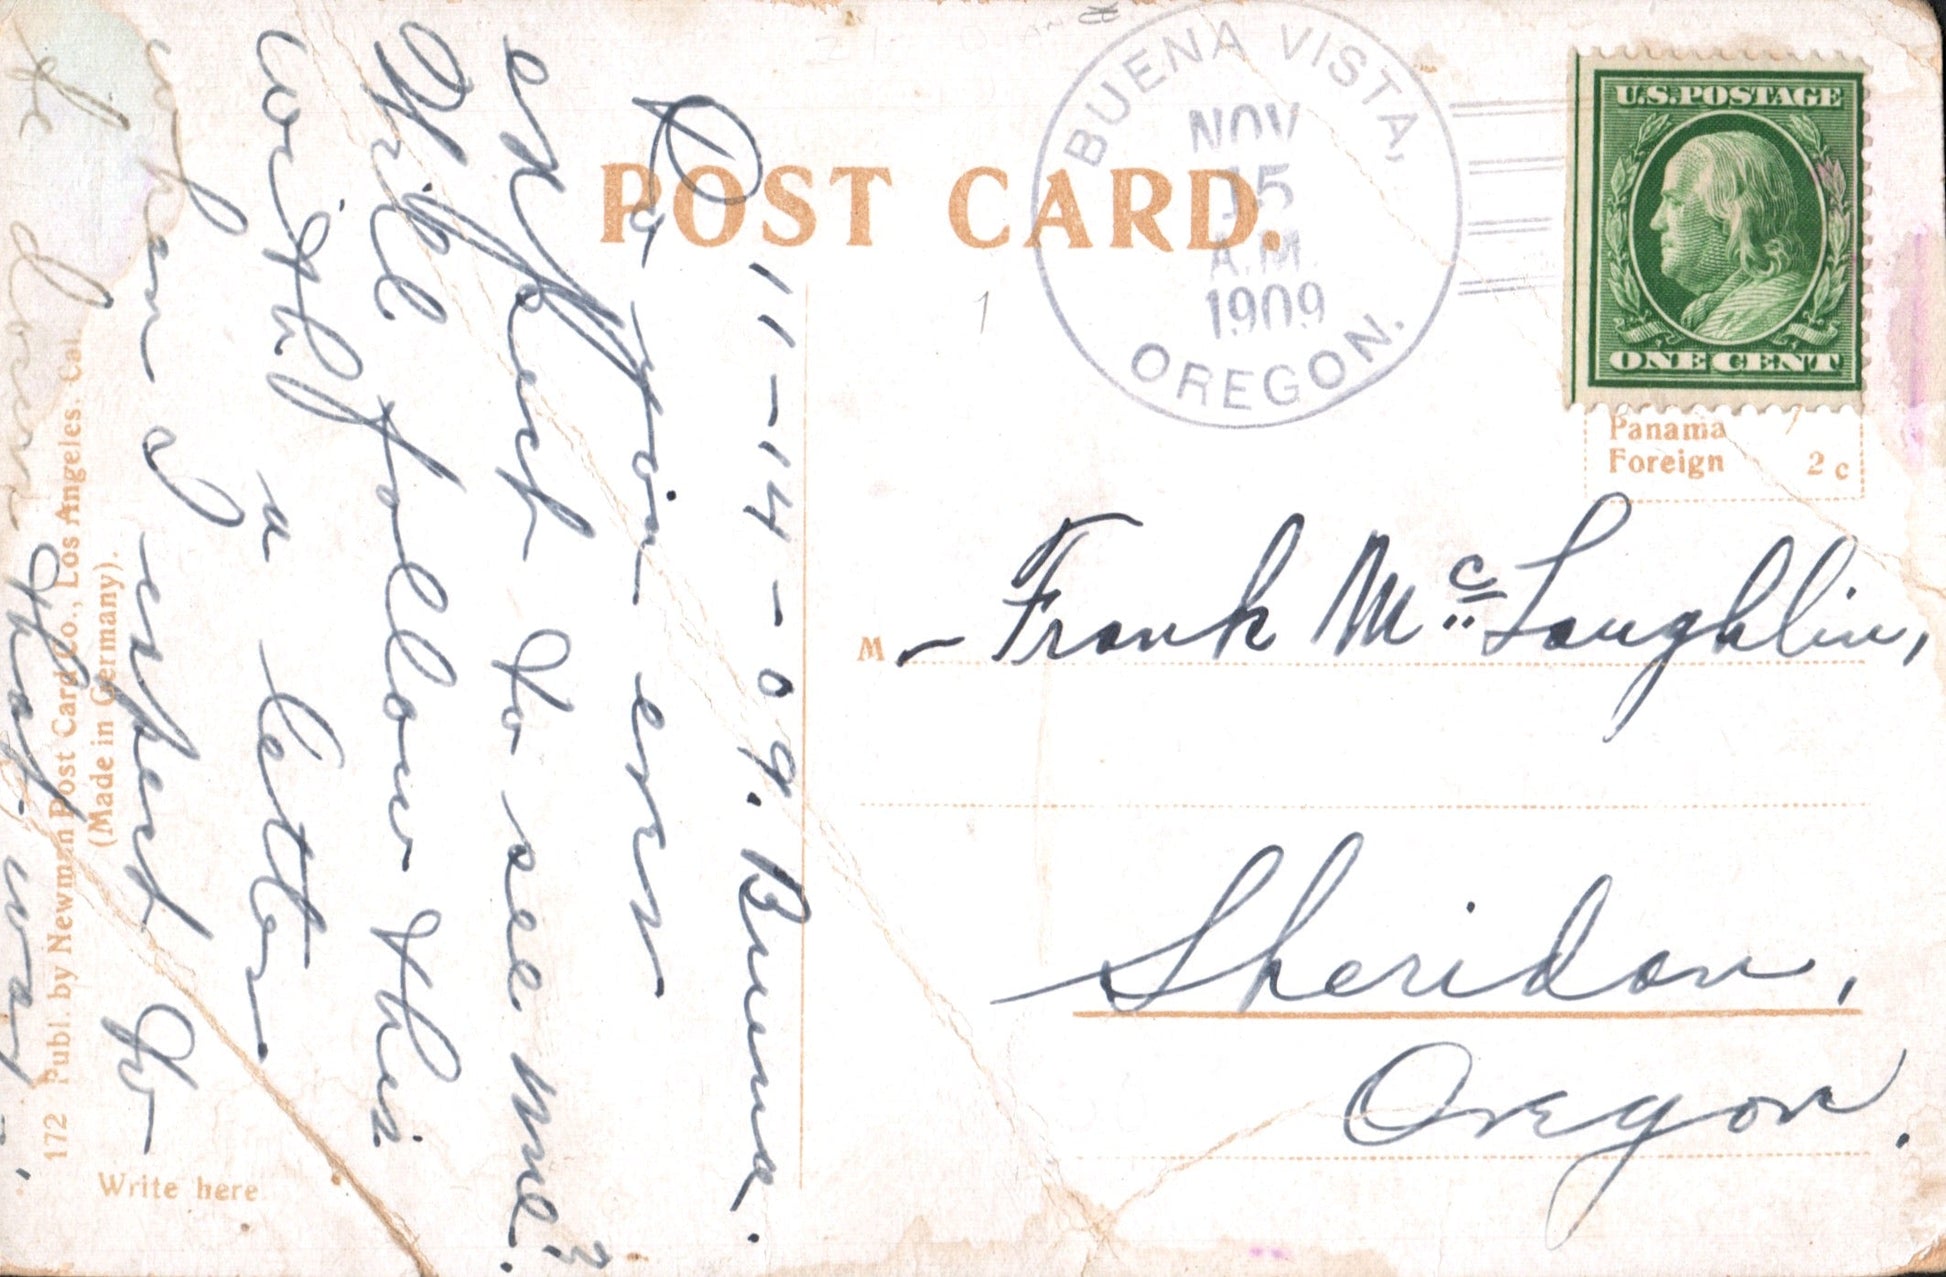 POST CARD.
BUENA VISTA,
NOV
15
A.M.
1909
OREGON.
U.S. POSTAGE
ONE CENT
Panama
Foreign 2c
1
11-14-09. Buena.
Do you ever
expect to see me?
Will follow this
with a letter
when I expect to
be down that way.
M - Frank Mc Loughlin,
Sheridan,
Oregon.
172 Publ. by Newman Post Card Co., Los Angeles. Cal.
(Made in Germany).
Write here